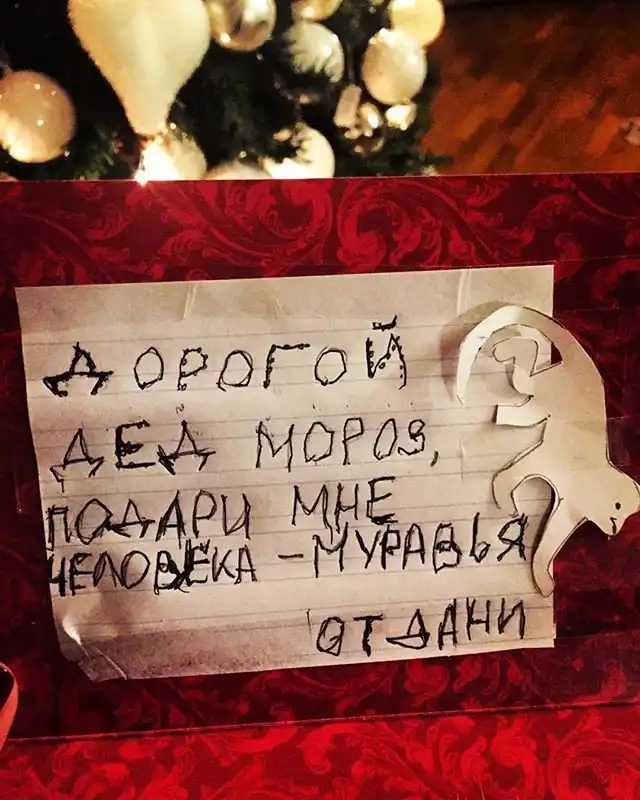 ДОРОГОЙ
ДЕД МОРОЗ,
ПОДАРИ МНЕ
ЧЕЛОВЕКА - МУРАВЬЯ
ОТ ДАНИ